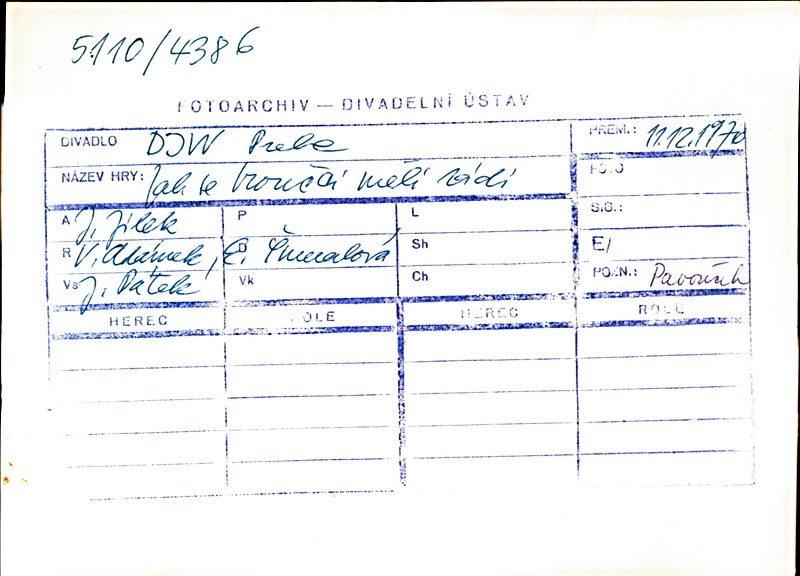 5110/4386
FOTOARCHIV — DIVADELNÍ ÚSTAV
DIVADLO DJW Praha
PREM.: 11.12.1970
NÁZEV HRY: Jak se broučci měli rádi
FOTO
SIG.:
A J. Jílek
P
L
R V. Adámek, E.
D
Sh
E/
Vs J. Pátek
Vk
Ch
POZN.: Pavouček
HEREC ROLE HEREC ROLE